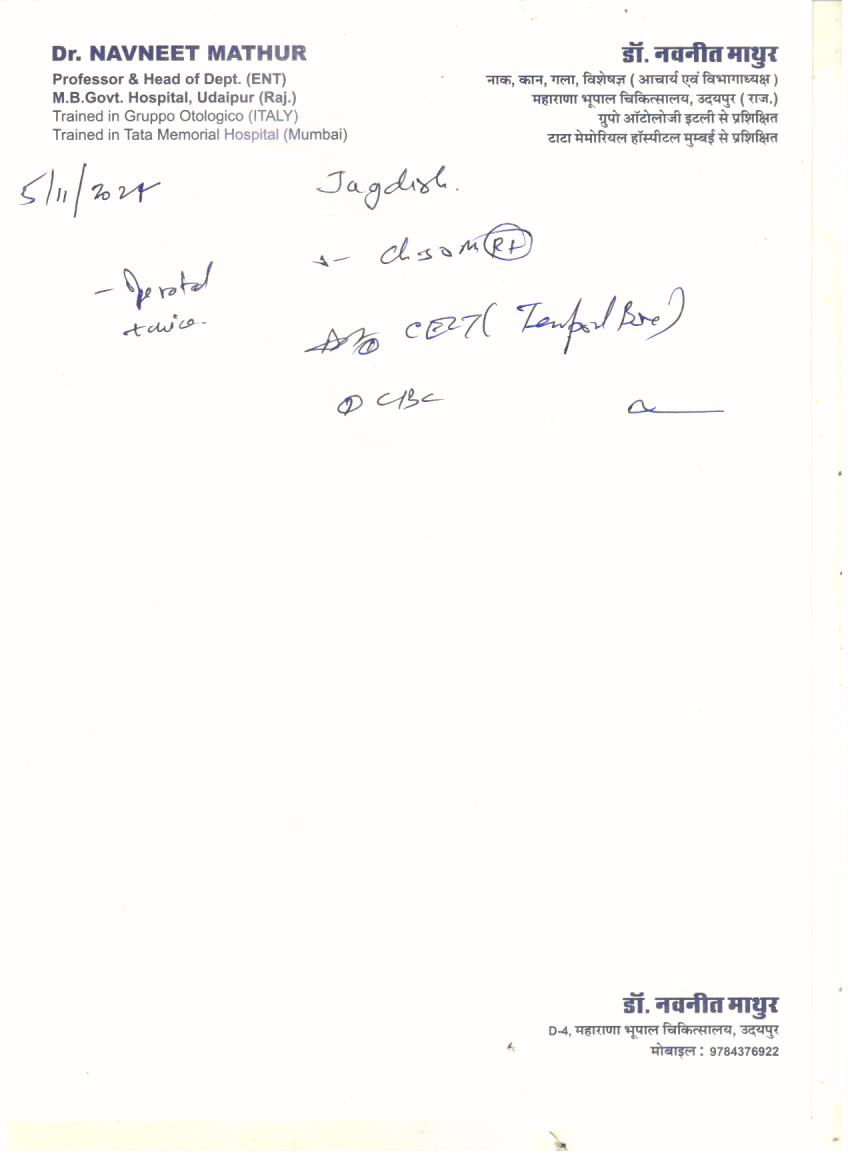 Dr. NAVNEET MATHUR
Professor & Head of Dept. (ENT)
M.B.Govt. Hospital, Udaipur (Raj.)
Trained in Gruppo Otologico (ITALY)
Trained in Tata Memorial Hospital (Mumbai)
डॉ. नवनीत माथुर
नाक, कान, गला, विशेषज्ञ ( आचार्य एवं विभागाध्यक्ष )
महाराणा भूपाल चिकित्सालय, उदयपुर ( राज.)
ग्रुपो ऑटोलोजी इटली से प्रशिक्षित
टाटा मेमोरियल हॉस्पीटल मुम्बई से प्रशिक्षित
5/11/2024
Jagdish.
- Operated
twice.
CSOM Rt
(Temporal Bone)
CBC
डॉ. नवनीत माथुर
D-4, महाराणा भूपाल चिकित्सालय, उदयपुर
मोबाइल : 9784376922